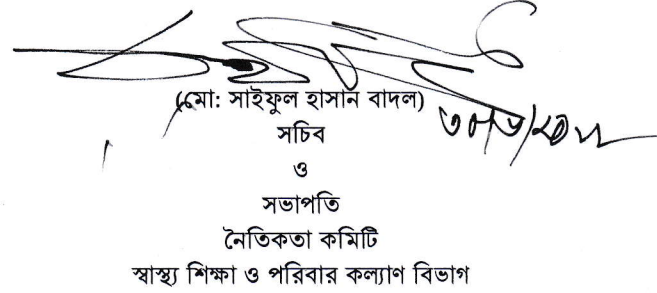 (মো: সাইফুল হাসান বাদল)
সচিব
ও
সভাপতি
নৈতিকতা কমিটি
স্বাস্থ্য শিক্ষা ও পরিবার কল্যাণ বিভাগ